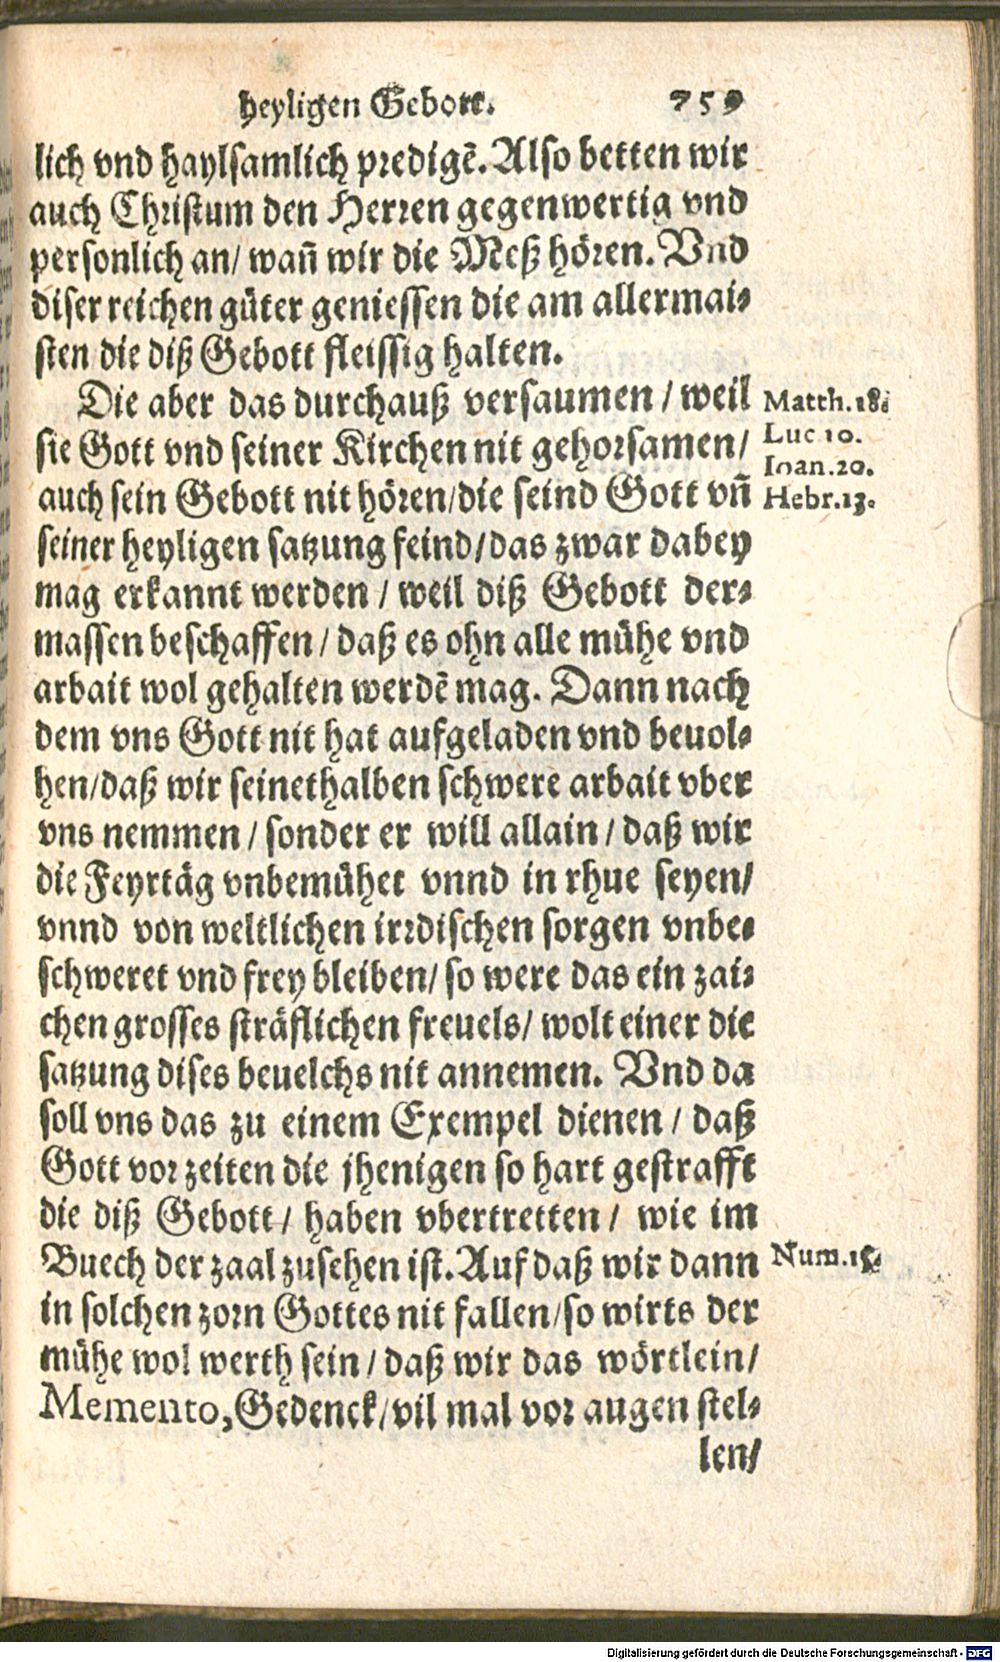 heyligen Gebott. 759
lich vnd haylsamlich predigẽ. Also betten wir
auch Christum den Herren gegenwertig vnd
personlich an/ wañ wir die Meß hören. Vnd
diser reichen güter geniessen die am allermai-
sten die diß Gebott fleissig halten.
Die aber das durchauß versaumen / weil
sie Gott vnd seiner Kirchen nit gehorsamen/
auch sein Gebott nit hören/die seind Gott vñ
seiner heyligen satzung feind/das zwar dabey
mag erkannt werden / weil diß Gebott der-
massen beschaffen / daß es ohn alle mühe vnd
arbait wol gehalten werdẽ mag. Dann nach
dem vns Gott nit hat aufgeladen vnd beuol-
hen/daß wir seinethalben schwere arbait vber
vns nemmen / sonder er will allain / daß wir
die Feyrtäg vnbemühet vnnd in rhue seyen/
vnnd von weltlichen irrdischen sorgen vnbe-
schweret vnd frey bleiben/ so were das ein zai-
chen grosses sträflichen freuels/ wolt einer die
satzung dises beuelchs nit annemen. Vnd da
soll vns das zu einem Exempel dienen / daß
Gott vor zeiten die jhenigen so hart gestrafft
die diß Gebott / haben vbertretten / wie im
Buech der zaal zusehen ist. Auf daß wir dann
in solchen zorn Gottes nit fallen/so wirts der
mühe wol werth sein / daß wir das wörtlein/
Memento, Gedenck/vil mal vor augen stel-
len/
Matth.18.
Luc 10.
Ioan.20.
Hebr.13.
Num.15.
Digitalisierung gefördert durch die Deutsche Forschungsgemeinschaft - DFG